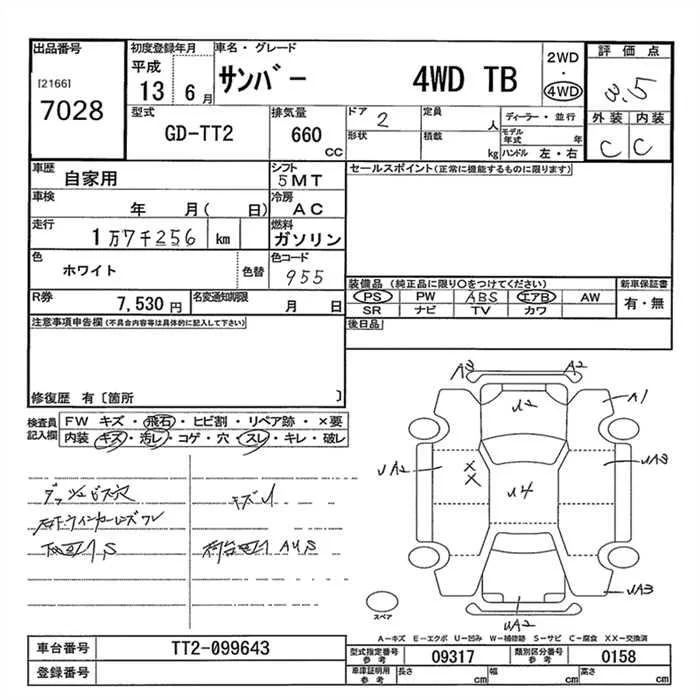 出品番号
[2166]
7028
初度登録年月
平成
13 6月
車名・グレード
サンバー 4WD TB
2WD
・
4WD
評価点
3.5
外装 内装
C C
型式
GD-TT2
排気量
660
CC
ドア 2
形状
定員 人
積載 kg
ディーラー・並行
モデル年式 年
ハンドル 左・右
車歴
自家用
シフト
5MT
セールスポイント(正常に機能するものに限ります)
車検
年 月( 日)
冷房
AC
走行
1万7千256 km
燃料
ガソリン
色
ホワイト
色替
色コード
955
装備品 (純正品に限り○をつけてください)
新車保証書
PS PW ABS エアB AW
有・無
SR ナビ TV カワ
R券
7,530 円
名変通知期限
月 日
後日品
注意事項申告欄(不具合内容等は具体的に記入して下さい)
修復歴 有〔箇所 〕
検査員
記入欄
FW キズ・飛石・ヒビ割・リペア跡・×要
内装・キズ・汚レ・コゲ・穴・スレ・キレ・破レ
A3 A2
U2
A1
UA2
X
X
U4
UA3
UA3
UA2
スペア
A-キズ E-エクボ U-凹み W-補修跡 S-サビ C-腐食 XX-交換済
車台番号
TT2-099643
型式指定番号
参考
09317
類別区分番号
参考
0158
登録番号
車庫証明用
参考
長さ cm
幅 cm
高さ cm